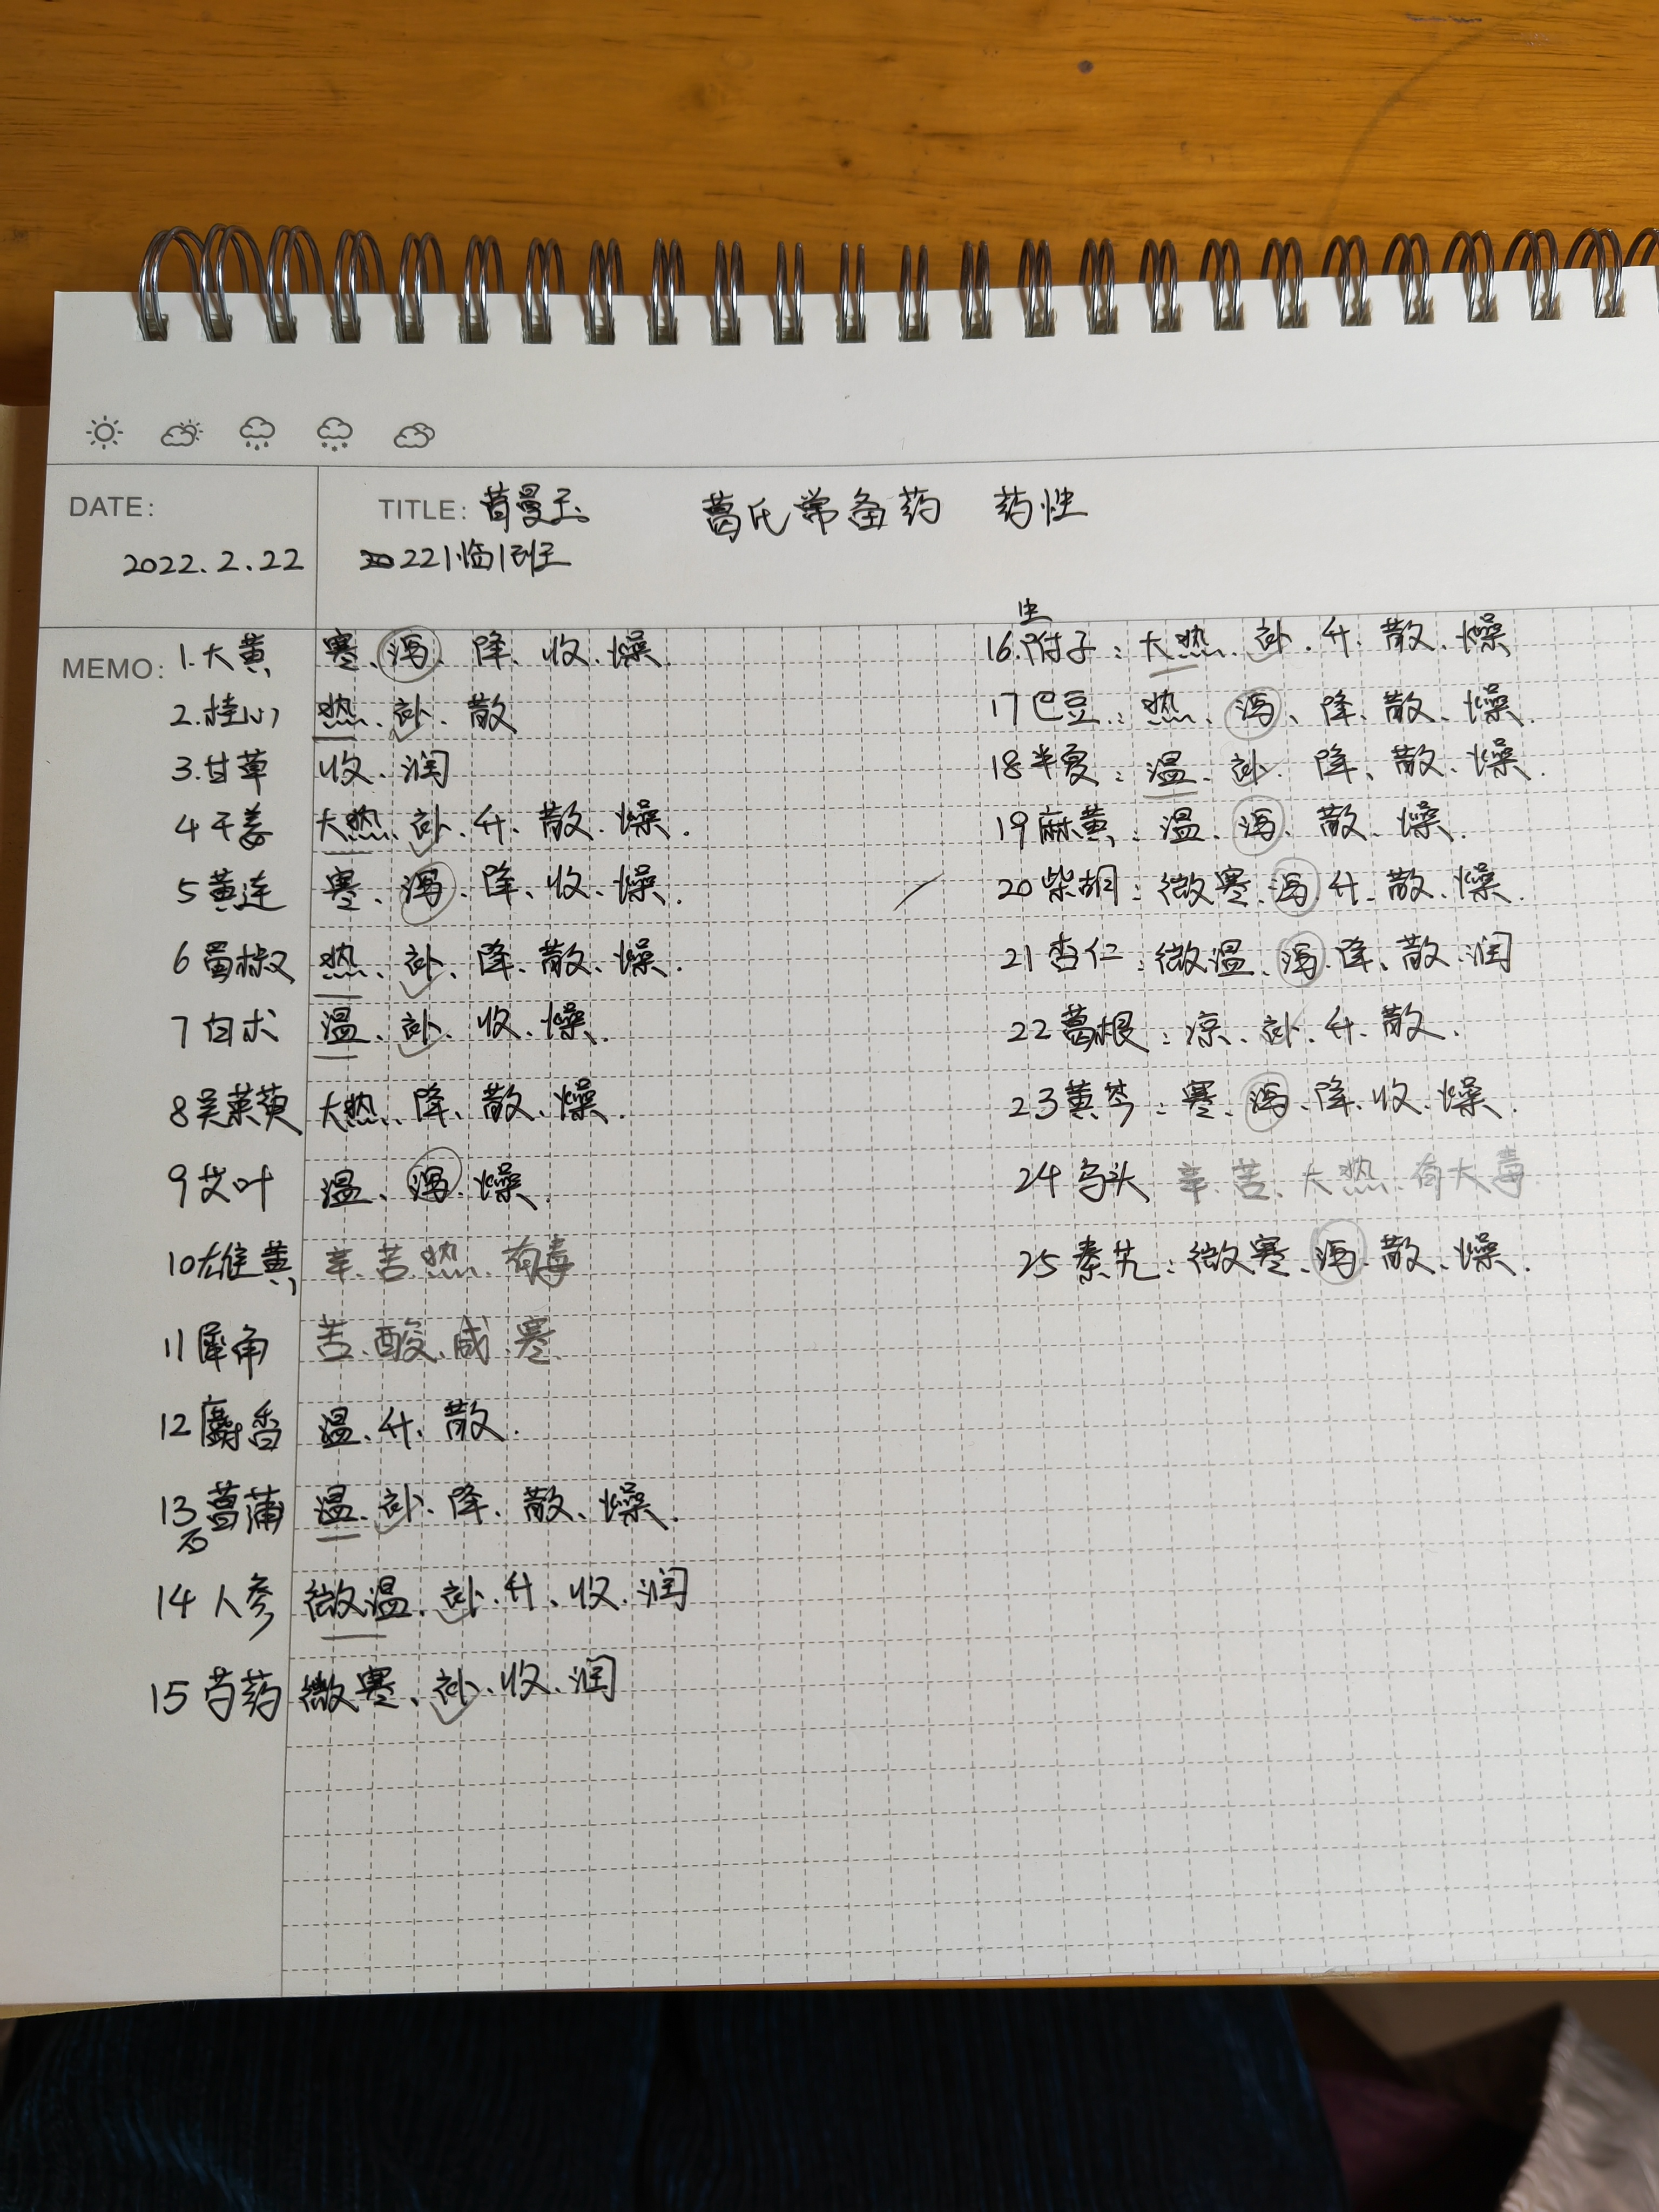 DATE:
2022.2.22
TITLE: 曼玉 葛氏常备药 药性
221临1班
MEMO: 1.大黄 寒、泻、降、收、燥
2.桂心 热、补、散
3.甘草 收、润
4干姜 大热、补、升、散、燥.
5黄连 寒、泻、降、收、燥.
6蜀椒 热、补、降、散、燥.
7白术 温、补、收、燥.
8吴茱萸 大热、降、散、燥.
9艾叶 温、泻、燥.
10雄黄 辛、苦、热、有毒
11犀角 苦、酸、咸、寒.
12麝香 温、升、散.
13石菖蒲 温、补、降、散、燥.
14人参 微温、补、升、收、润
15芍药 微寒、补、收、润
16.生附子:大热、补、升、散、燥
17巴豆:热、泻、降、散、燥.
18半夏:温、补、降、散、燥.
19麻黄:温、泻、散、燥.
20柴胡:微寒、泻、升、散、燥.
21杏仁:微温、泻、降、散、润
22葛根:凉、补、升、散.
23黄芩:寒、泻、降、收、燥.
24乌头 辛、苦、大热、有大毒
25秦艽:微寒、泻、散、燥.